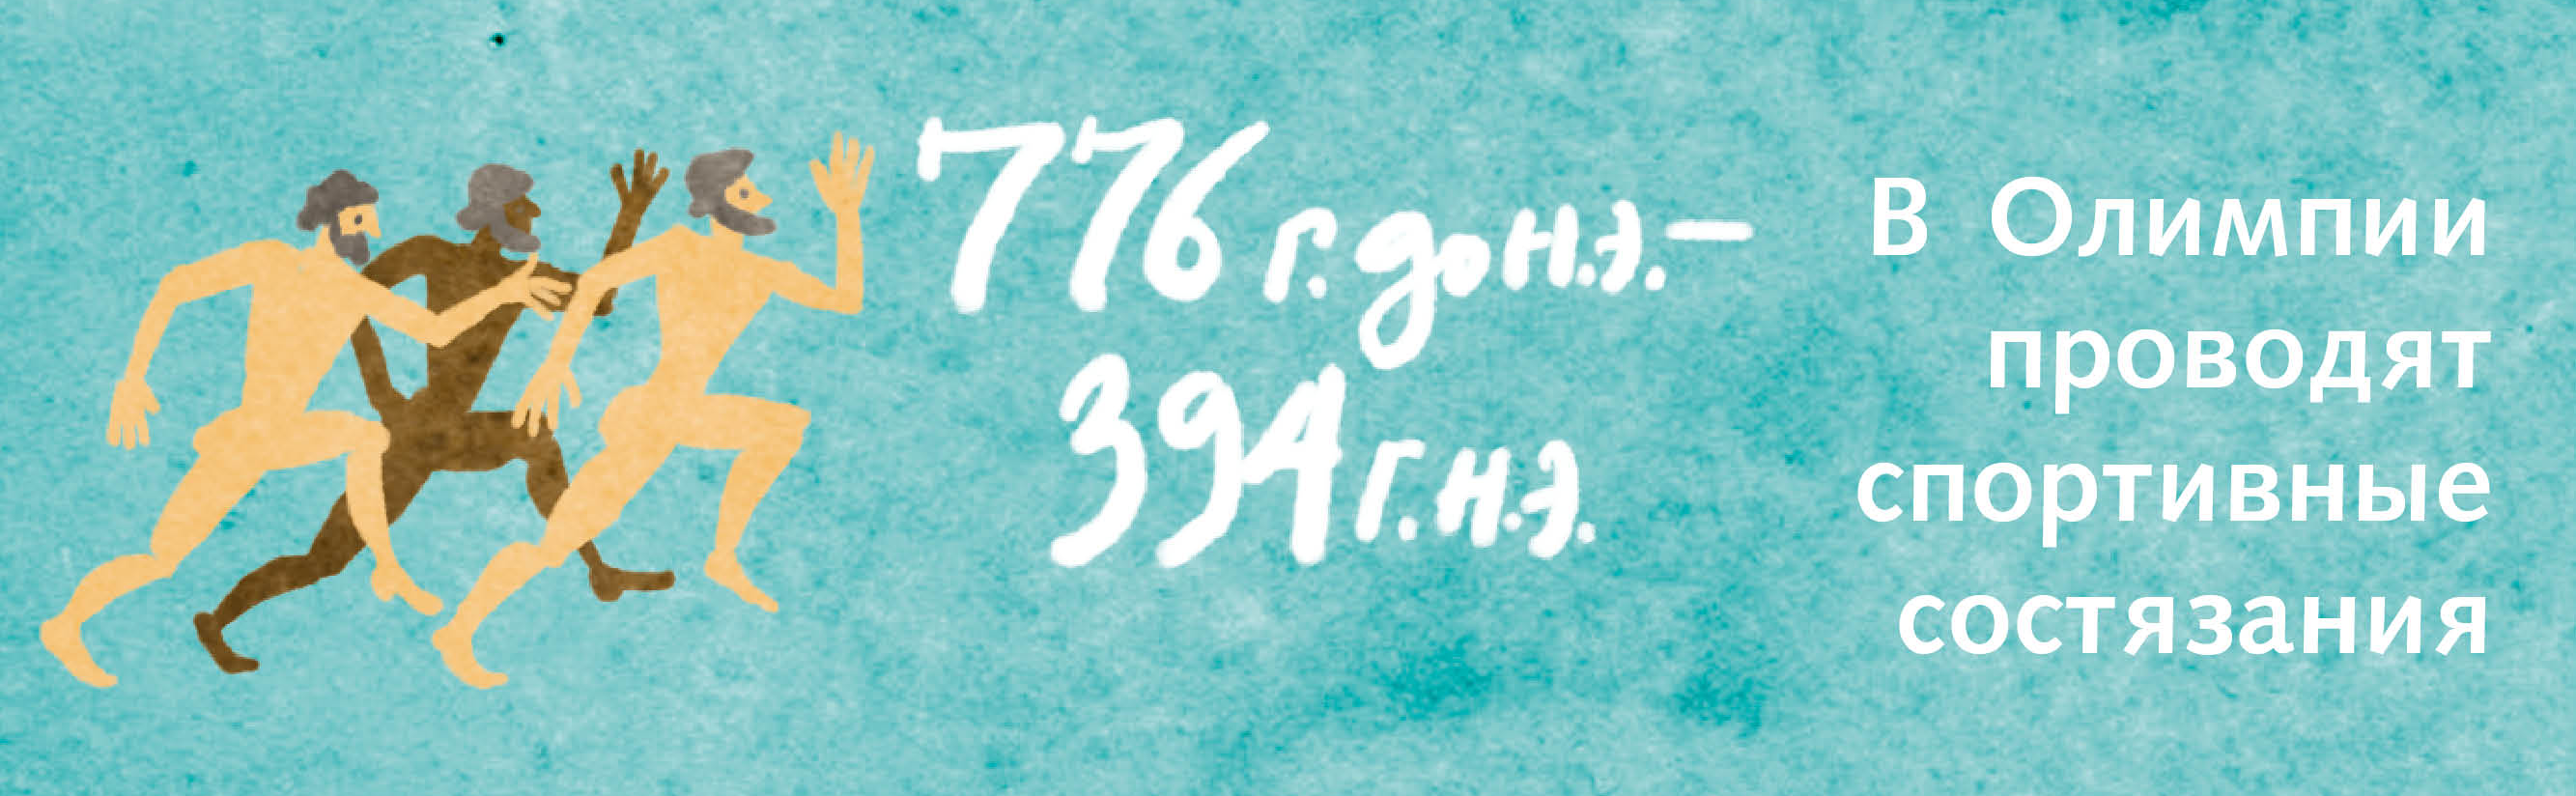 776 г. до н.э. –
394 г. н.э.
В Олимпии
проводят
спортивные
состязания